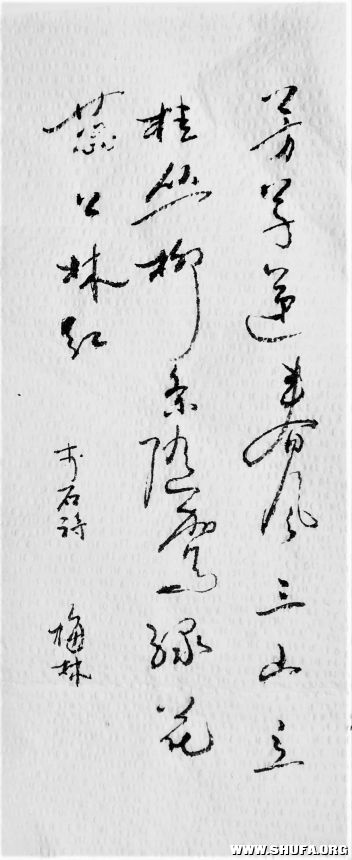 芳草春风三山
桂丛柳条随绿花
蕊上林红
于石诗
梅林
WWW.SHUFA.ORG